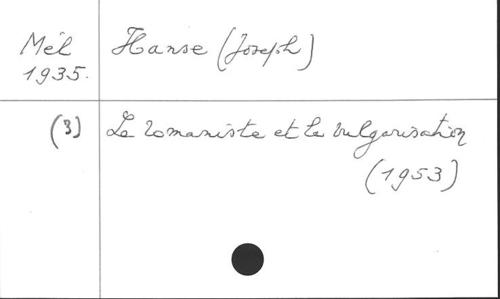 Mél
1935.
Hanse (Joseph)
(3)
Le romaniste et la vulgarisation
(1953)